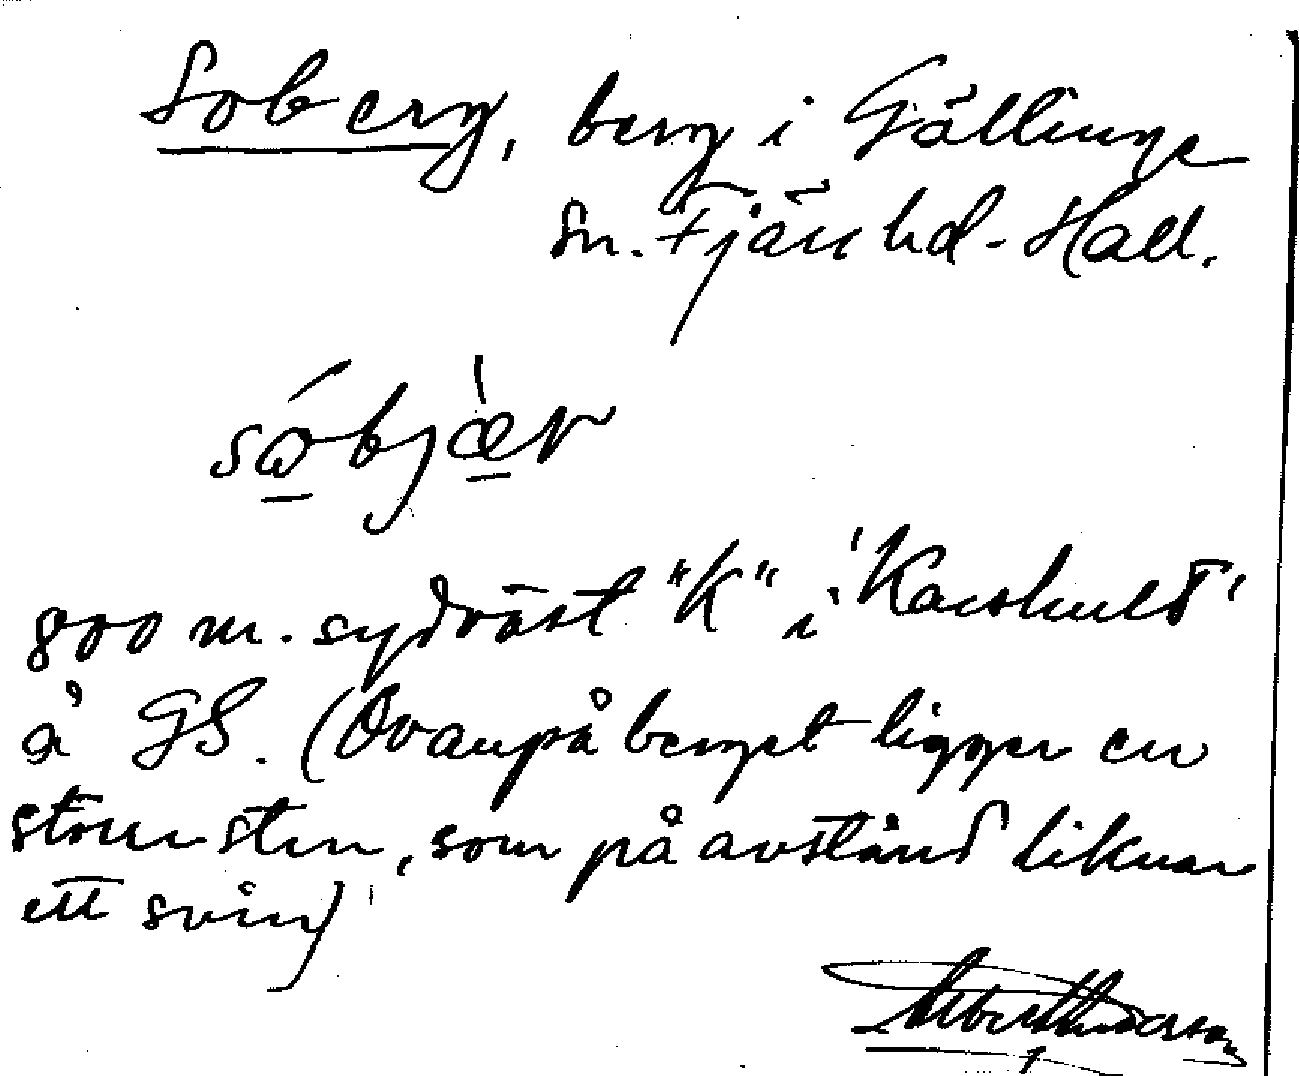 Soberg, berg i Gällinge
sn. Fjäre hd. Hall.
sǿbjær
800 m. sydväst "K" i 'Karshult'
å GS. (Ovanpå berget ligger en
stor sten, som på avstånd liknar
ett svin)
Albert Andersson